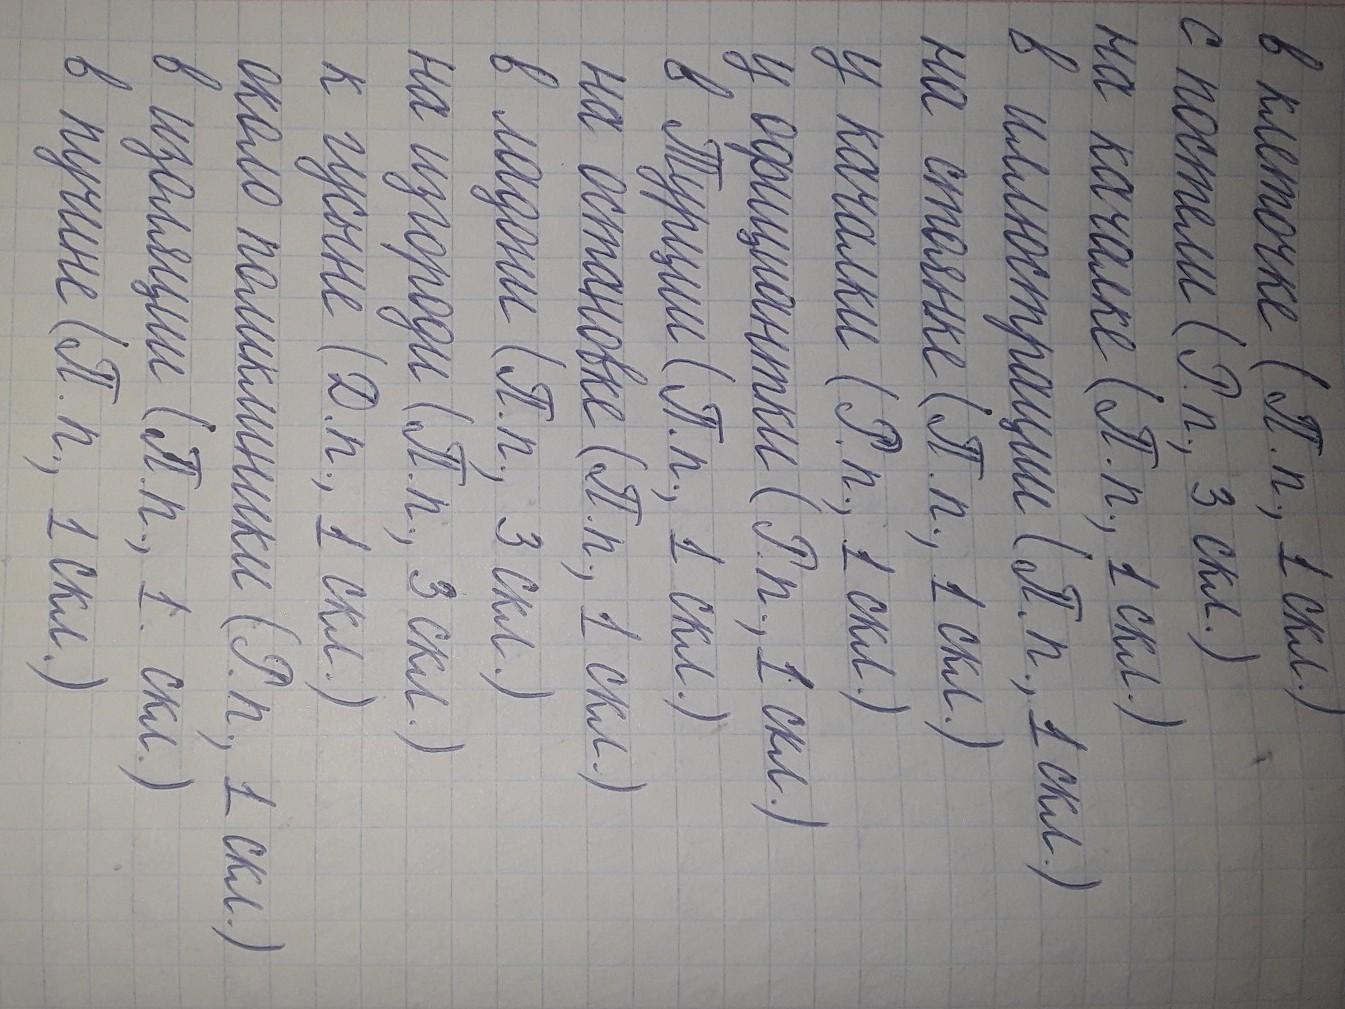 в клеточке (П.п., 1 скл.)
с постели (Р.п., 3 скл.)
на качалке (П.п., 1 скл.)
в иллюстрации (П.п., 1 скл.)
на стоянке (П.п., 1 скл.)
у качалки (Р.п., 1 скл.)
у официантки (Р.п., 1 скл.)
в Турции (П.п., 1 скл.)
на остановке (П.п., 1 скл.)
в ладони (П.п., 3 скл.)
на изгороди (П.п., 3 скл.)
к гусыне (Д.п., 1 скл.)
около поликлиники (Р.п., 1 скл.)
в изоляции (П.п., 1. скл.)
в пучине (П.п., 1 скл.)